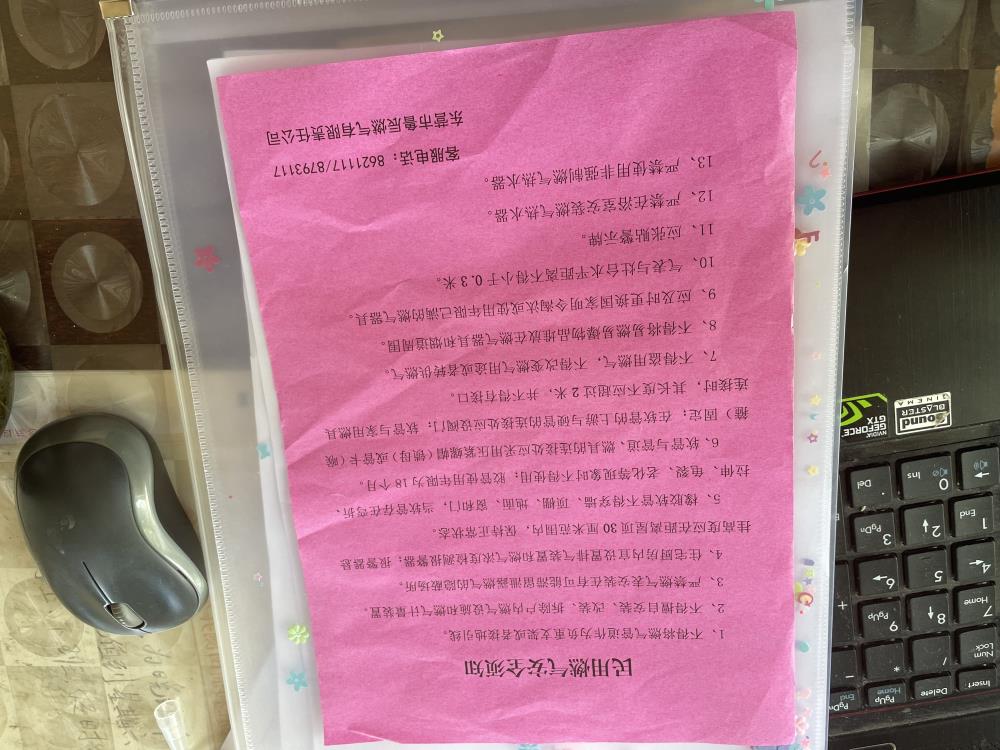 民用燃气安全须知
1、不得将燃气管道作为负重支架或者接地引线。
2、不得擅自安装、改装、拆除户内燃气设施和燃气计量装置
3、严禁燃气表安装在有可能滞留泄露燃气的隐蔽场所。
4、住宅厨房内宜设置排气装置和燃气浓度检测报警器；报警器悬
挂高度应在距离屋顶 30 厘米范围内，保持正常状态。
5、橡胶软管不得穿墙、顶棚、地面、窗和门，当软管存在弯折、
拉伸、龟裂、老化等现象时不得使用；胶管使用年限为 18 个月。
6、软管与管道、燃具的连接处应采用压紧螺帽（锁母）或管卡（喉
箍）固定；在软管的上游与硬管的连接处应设阀门；软管与家用燃具
连接时，其长度不应超过 2 米，并不得有接口。
7、不得盗用燃气，不得改变燃气用途或者转供燃气。
8、不得将易燃易爆物品堆放在燃气器具和烟道周围。
9、应及时更换国家明令淘汰或使用年限已满的燃气器具。
10、气表与灶台水平距离不得小于 0.3 米。
11、应张贴警示牌。
12、严禁在浴室安装燃气热水器。
13、严禁使用非强制燃气热水器。
客服电话：8621117/8793117
东营市鲁辰燃气有限责任公司
NVIDIA
GEFORCE
GTX
Sound
BLASTER
CINEMA
Insert
Delete
PgUp
Home
PgDn
End
Num
Lock
/
*
-
7
Home
8
9
PgUp
+
4
5
6
1
End
2
3
PgDn
0
Ins
.
Del